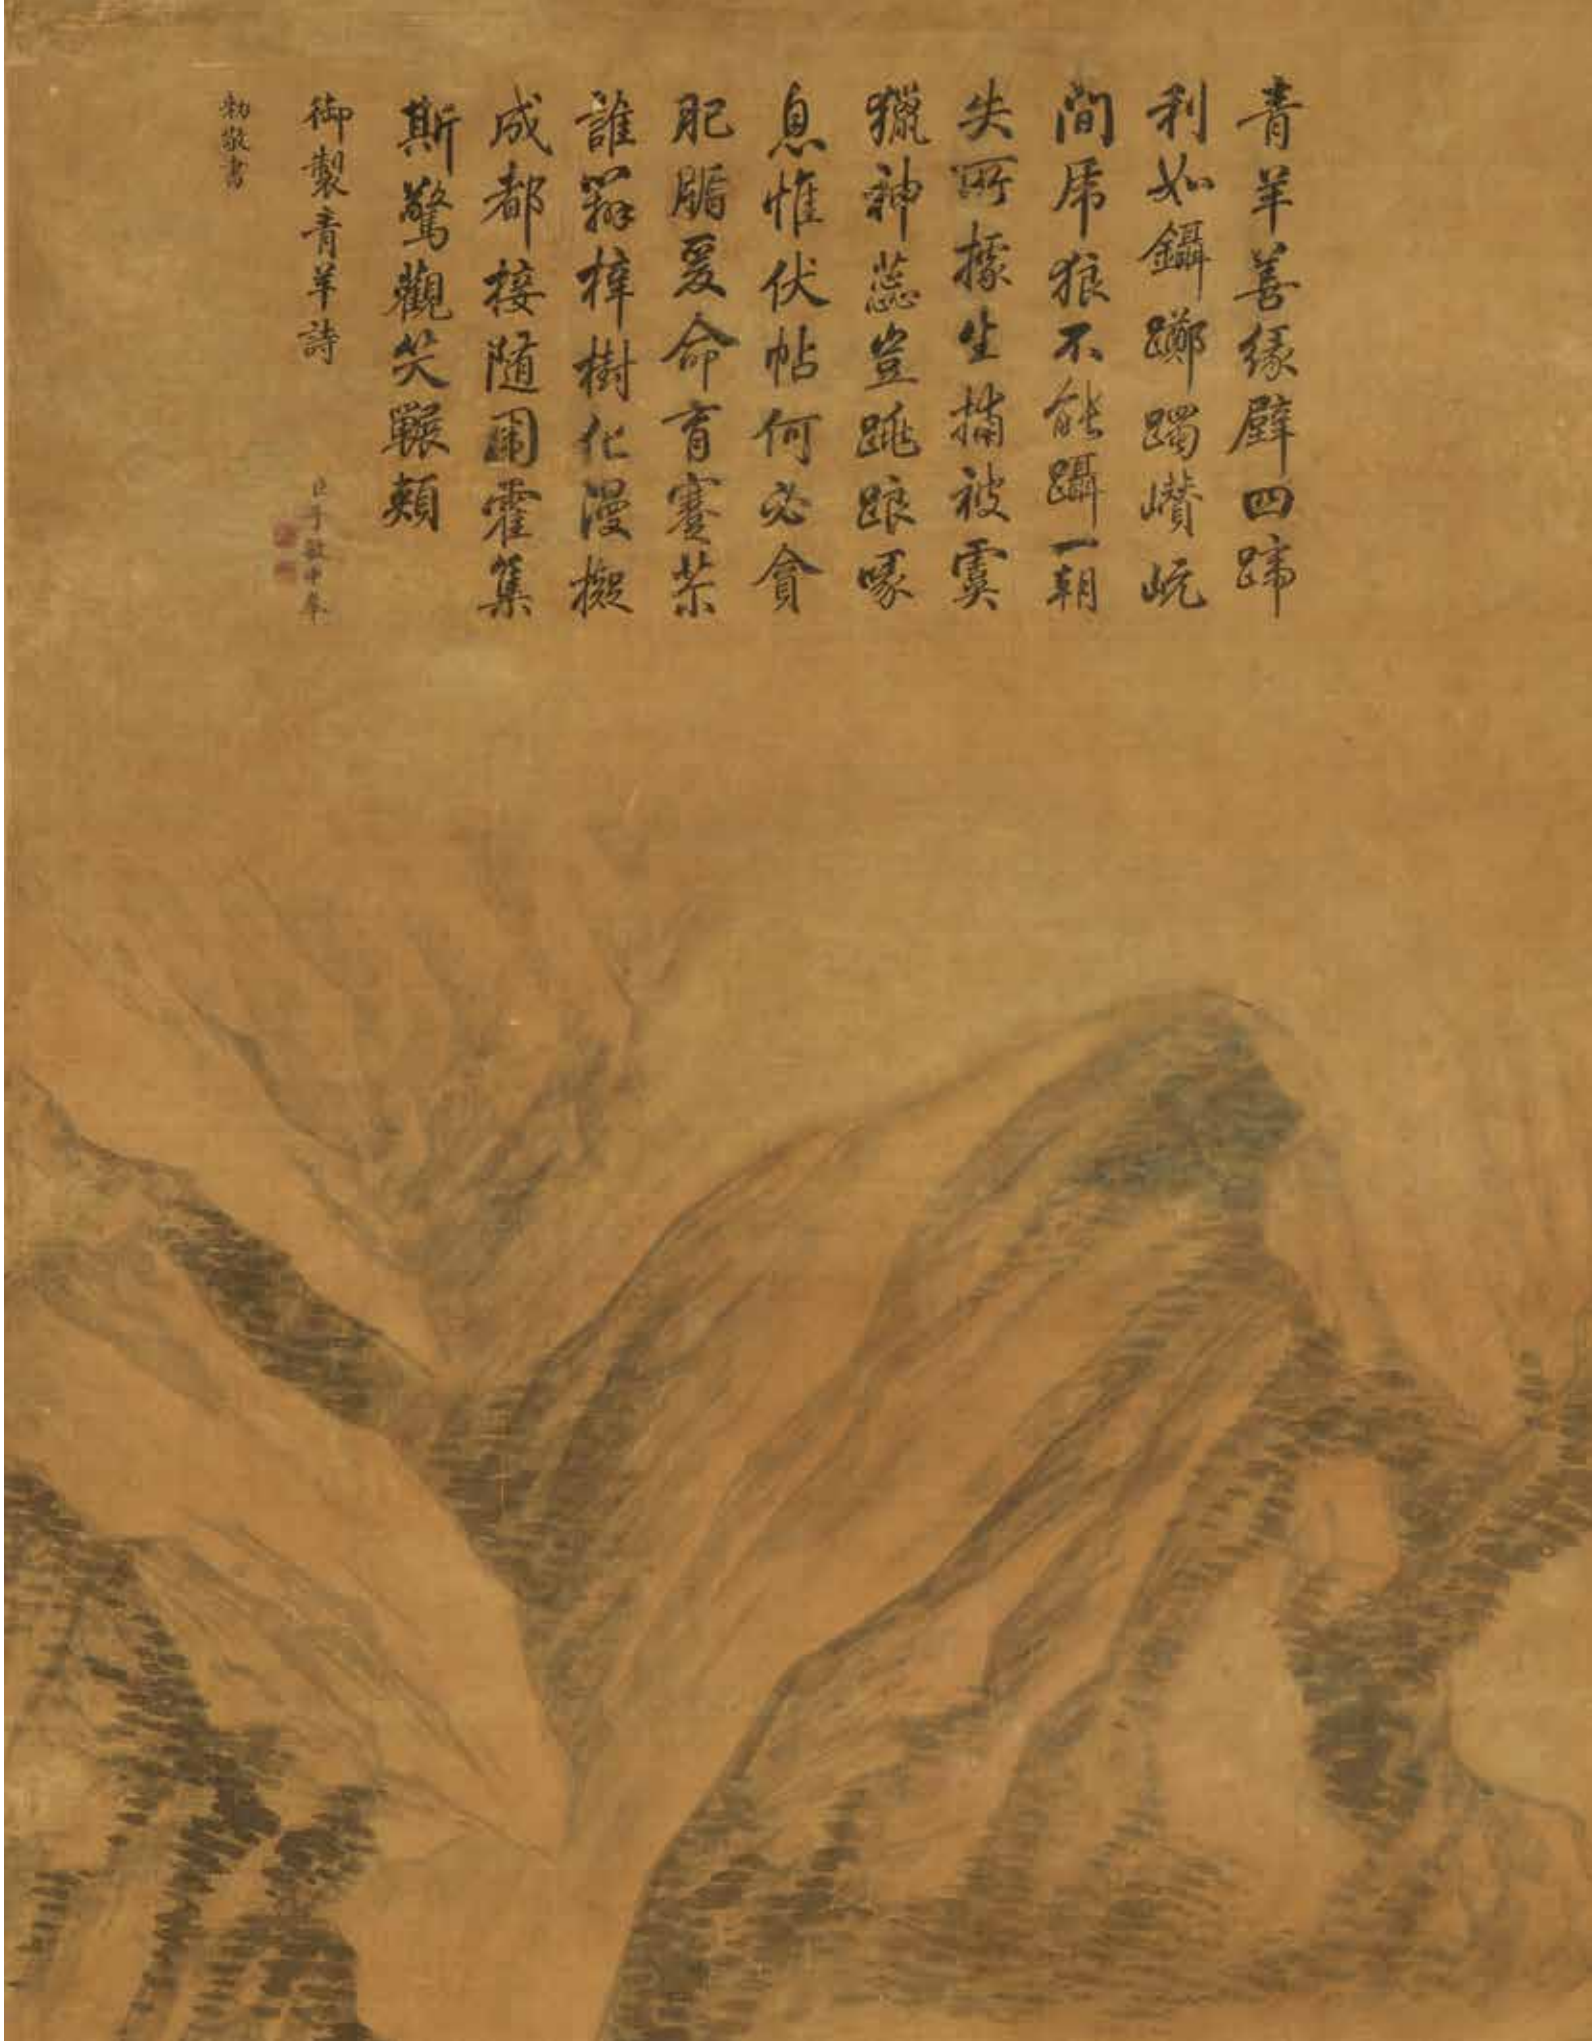 青羊善緣壁四蹄
利如鑷躑躅巑岏
間虎狼不能躡一朝
失所據生擒被虞
獵神蕊豈跳踉喙
息惟伏帖何必貪
肥腯爰命育賽茶
誰籜梓樹化漫擬
成都接隨圍霍集
斯驚觀笑囅頰
御製青羊詩
臣于敏中奉
勑敬書